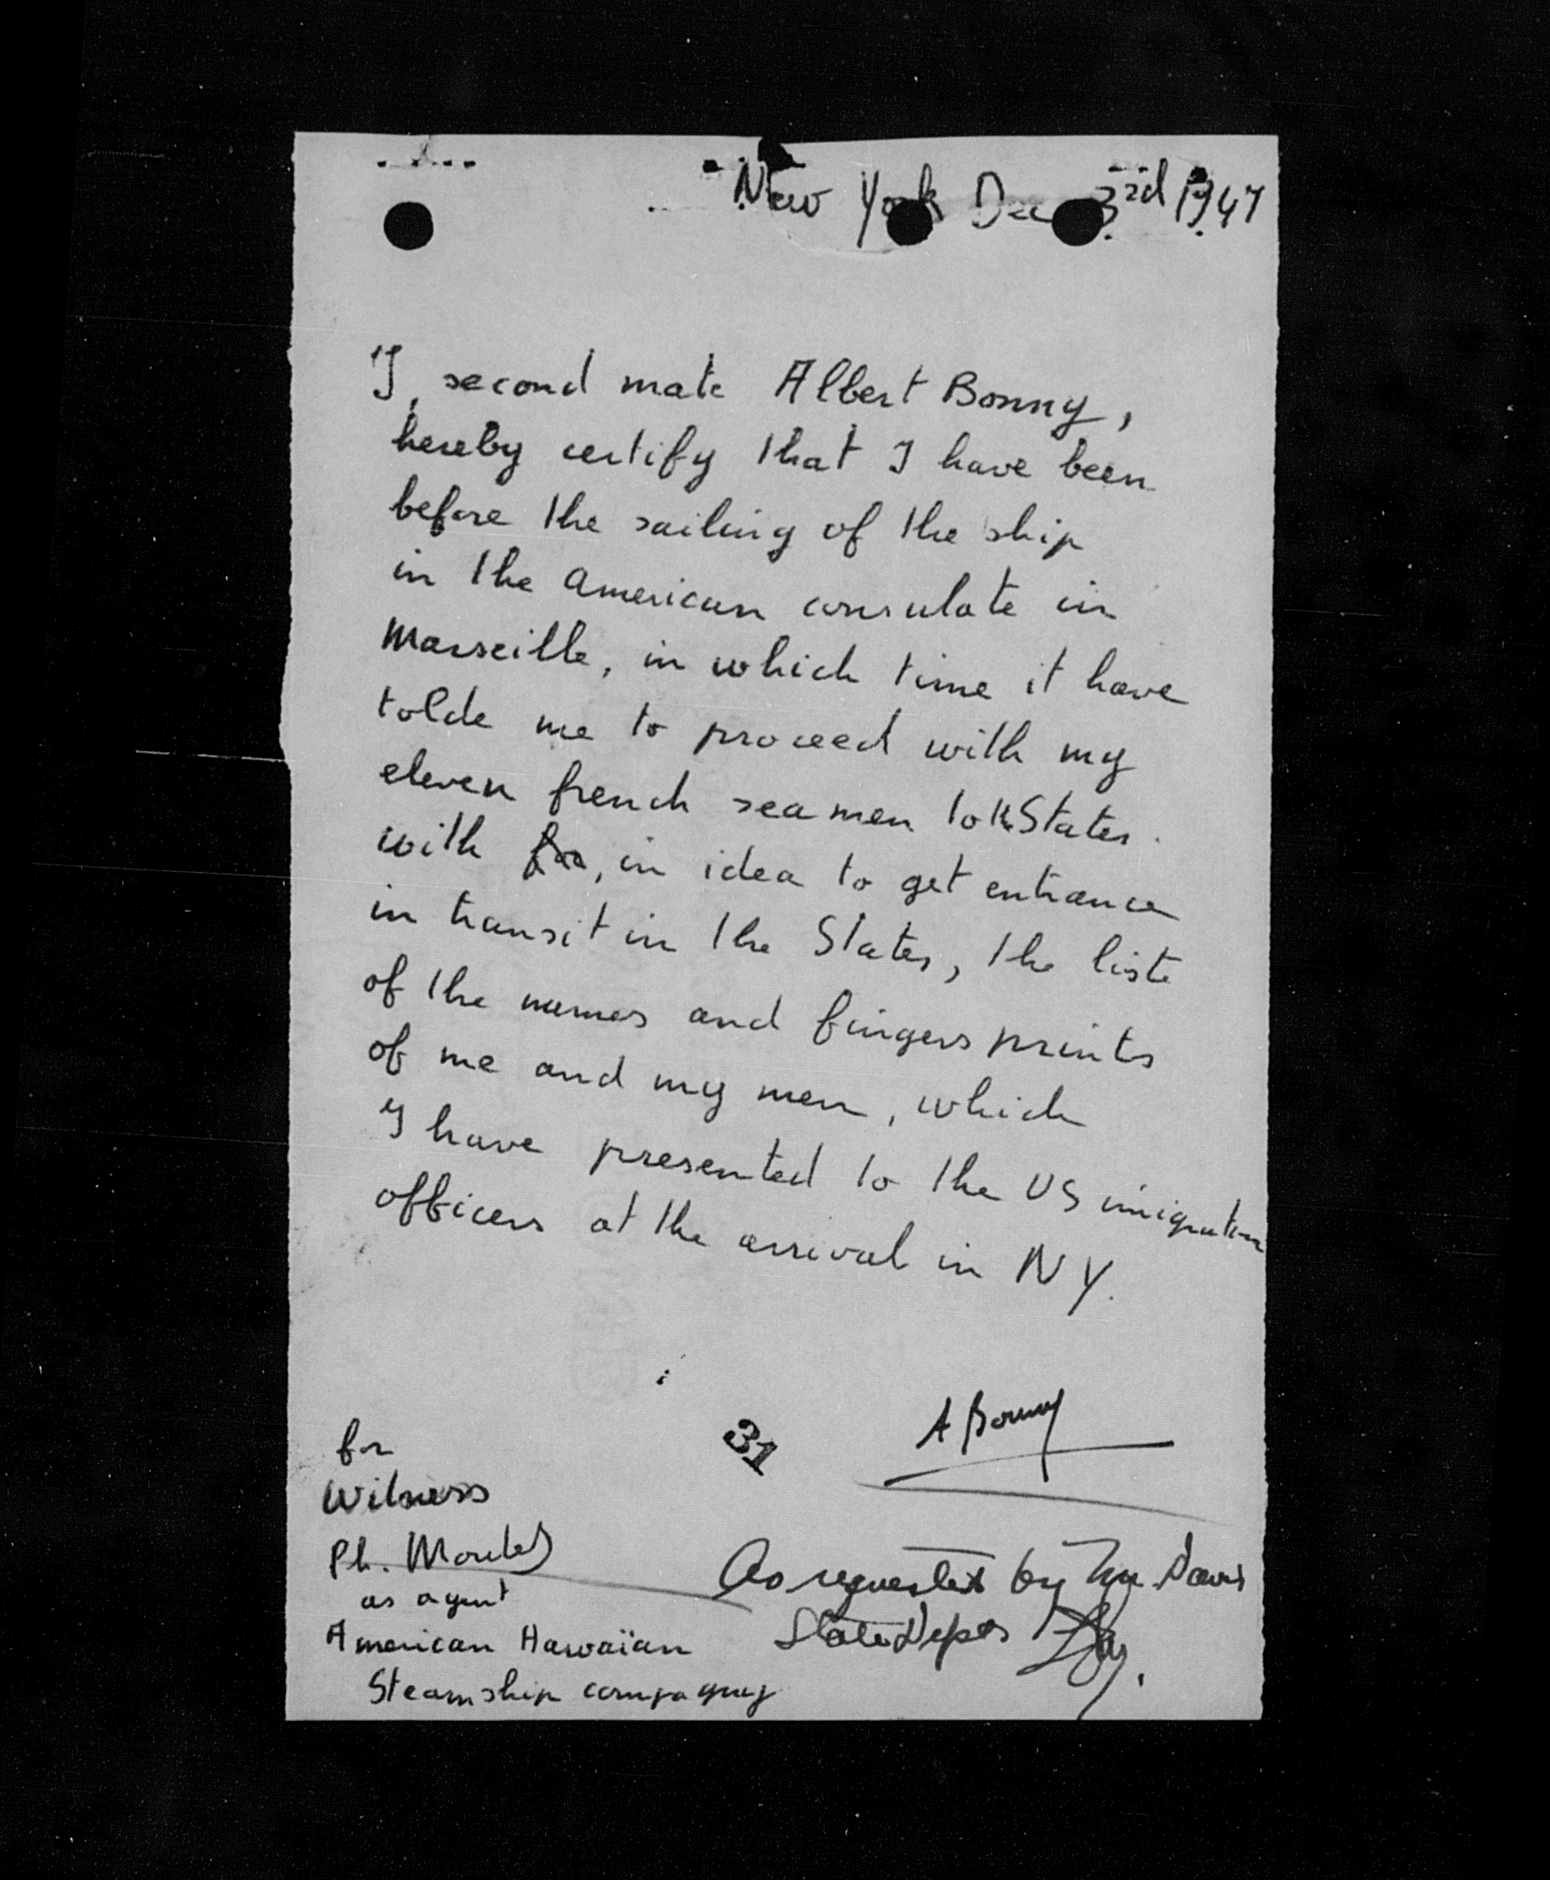 New York Dec 3rd 1947
I, second mate Albert Bonny,
hereby certify that I have been
before the sailing of the ship
in the American consulate in
Marseille, in which time it have
tolde me to proceed with my
eleven french seamen to th States.
with for, in idea to get entrance
in transit in the States, the liste
of the names and fingers prints
of me and my men, which
I have presented to the US imigration
officers at the arrival in NY.
31
A Bonny
for
Witness
Ph.
as agent
American Hawaïan
Steamship compagny
As requested by Mr. Davis
State Dept